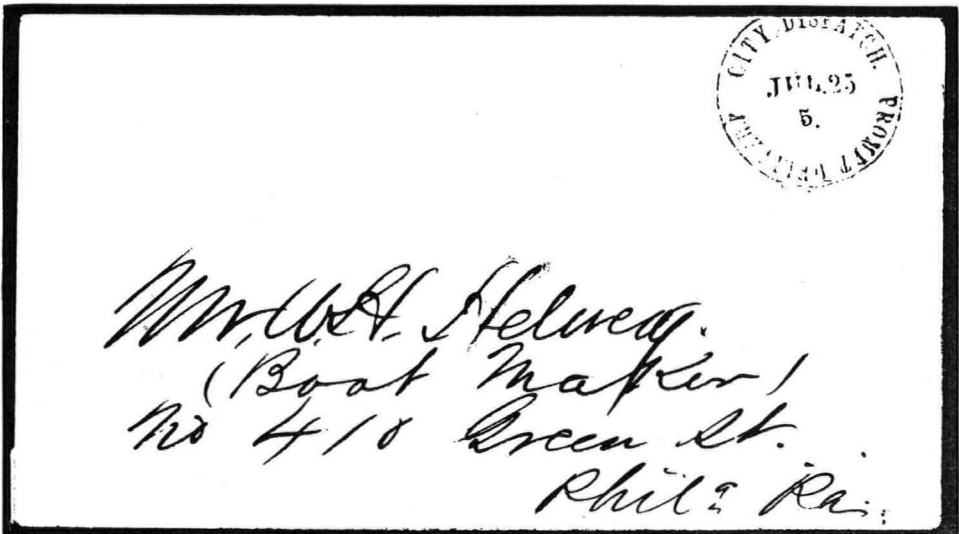 CITY DISPATCH. PROMPT DELIVERY
JUL. 25
5.
Mr. W. H. Helweg.
(Boot Maker)
No 418 Green St.
Phila Pa.